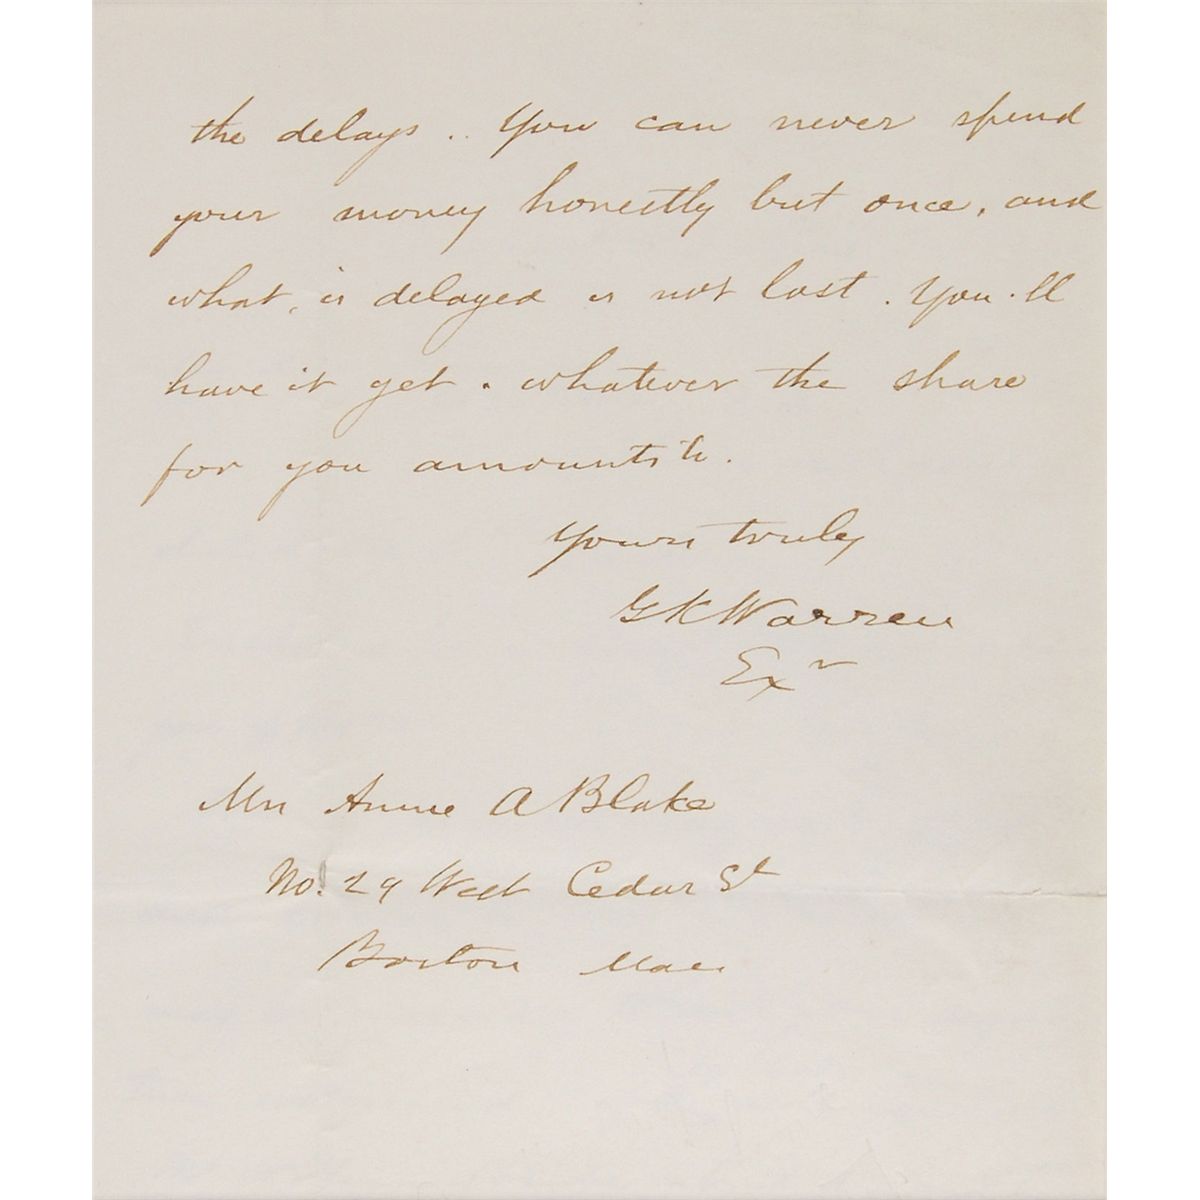 the delays .. You can never spend
your money honestly but once, and
what, is delayed is not lost. You'll
have it yet. whatever the share
for you amounts to.
Yours truly
GKWarren
Exr
Mrs Anne A Blake
No. 29 West Cedar St
Boston Mass